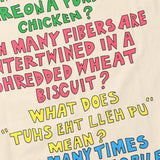 CHICKEN?
MANY FIBERS ARE
INTERTWINED IN A
SHREDDED WHEAT
BISCUIT?
WHAT DOES
"TUHS EHT LLEH PU"
MEAN?
MANY TIMES